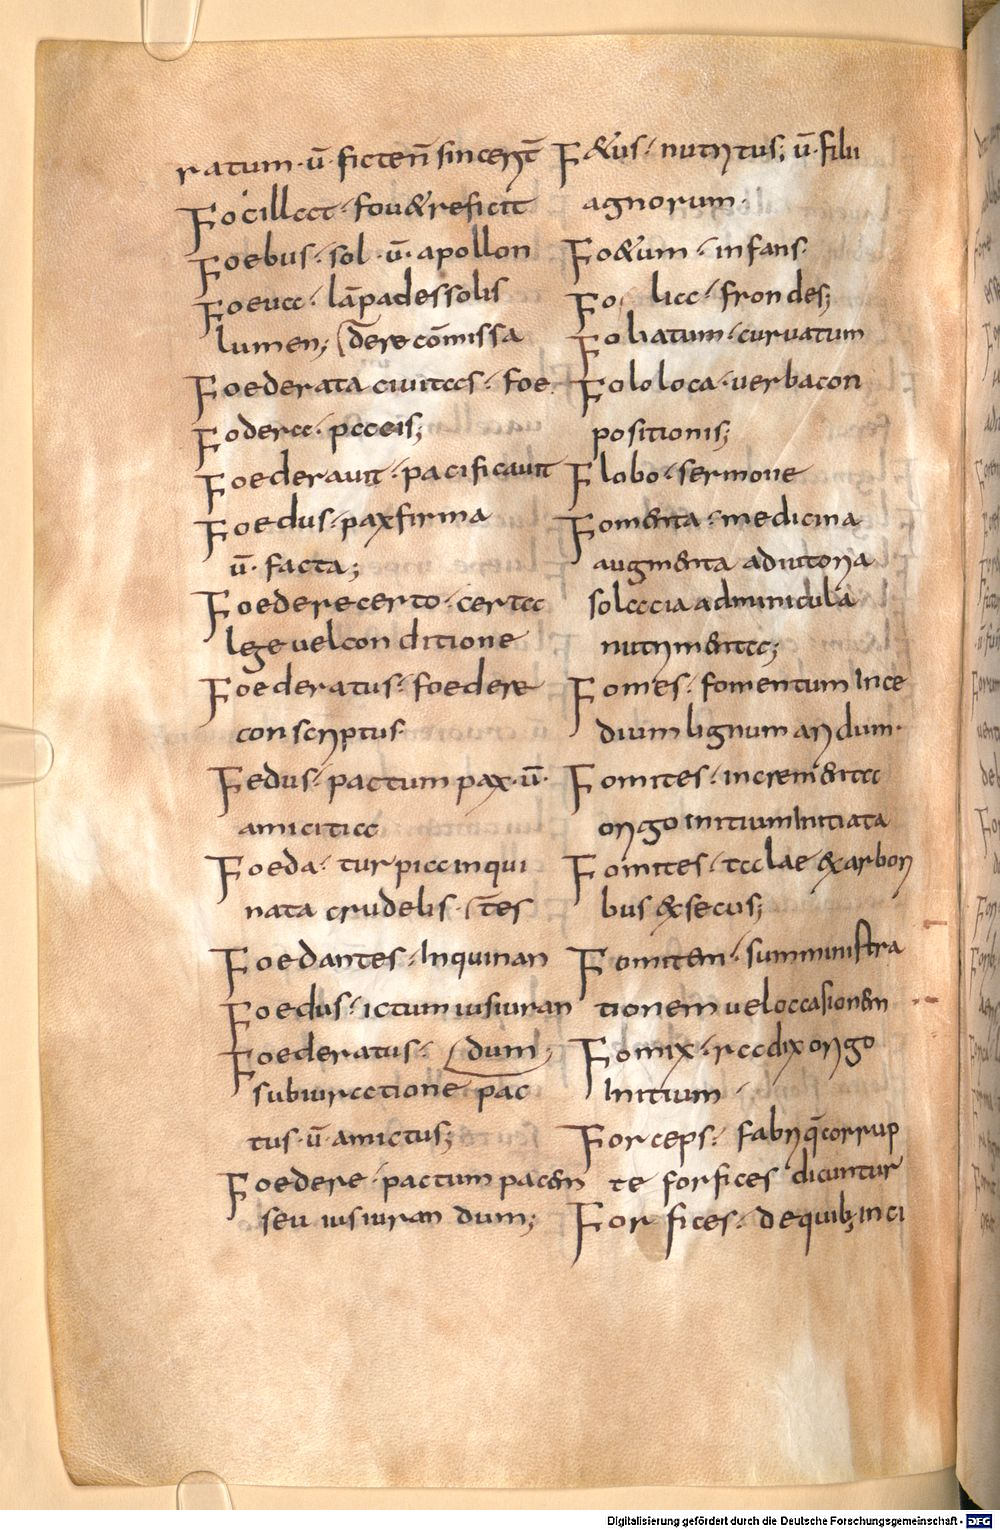 ratum · ū · ficten̄ sincer̄t
Focillat · fou&reficit
Foebus · sol · ū · apollon
Foeua · lāpadessolis
lumen; (dere cōmissa
Foederata ciuitas · foe
Fodera · paois;
Foederauit · pacificauit
Foedus · paxfirma
ū · facta;
Foederecerto · certa
lege uelconditione
Foederatus · foedere
conscriptus ·
Fedus · pactum pax · ū ·
amicitia
Foeda · turpia inqui
nata crudelis · (tes
Foedantes · Inquinan
Foedus · ictum iusiuran
Foederatus · (dum
subiuratione pac
tus · ū · amictus;
Foedere · pactum pacem
seu iusiurandum;
F&us · nutritus; ū · filii
agnorum ·
Fo&um · infans ·
Folia · frondes;
Foliatum · curuatum
Fololoca · uerbacon
positionis;
Flobo · sermone
Fomenta · medicina
augmenta adiutoria
solacia adminicula
nutrimenta;
Fomes · fomentum Ince
dium lignum aridum ·
Fomites · incrementa
origo initium Initiata
Fomites · taclae &arbori
bus &secus;
Fomitem · sumministra
tionem ueloccasionem
Fomix · radix origo
Initium ·
Forceps · fabriq̄ corrup
te forfices dicuntur
Forfices · dequib; inci
Digitalisierung gefördert durch die Deutsche Forschungsgemeinschaft - DFG